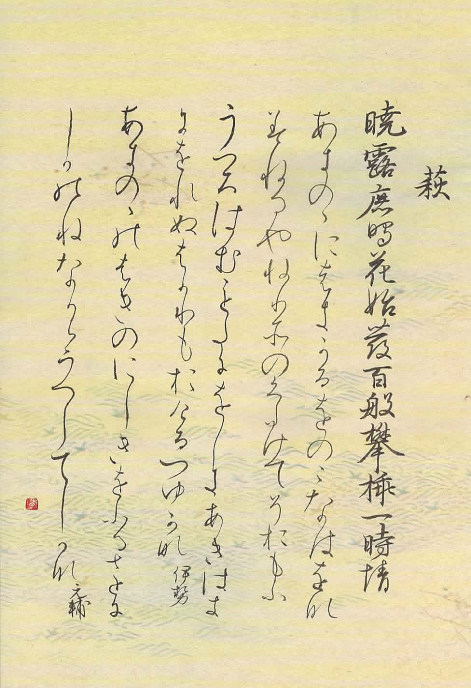 萩
暁露鹿鳴花始發百般攀折一時情
あきのゝにはきかるをのこなはをな
みねるやねりそのくたけてそおもふ
うつろはむことたにをしきあきはき
にをれぬはかりもおけるつゆかな 伊勢
あきのゝのはきのにしきをふるさとに
しかのねなからうつしてしかな 元輔